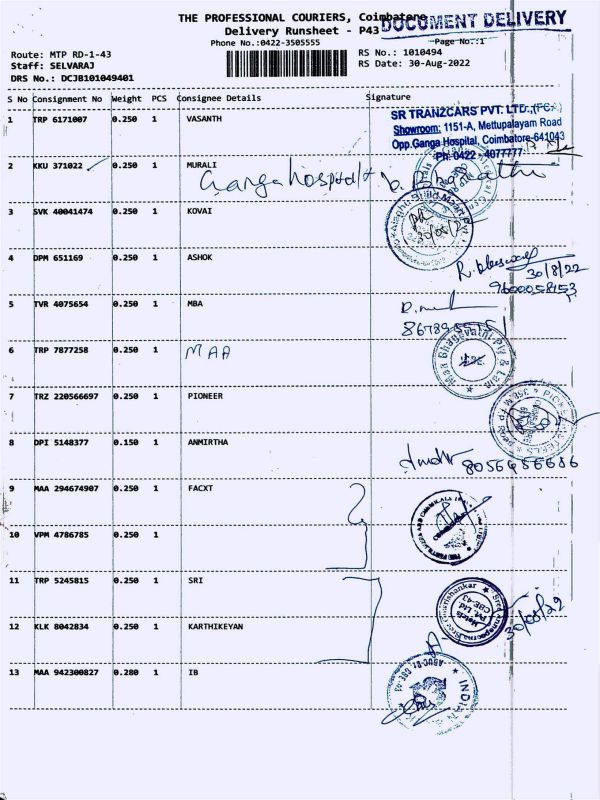 THE PROFESSIONAL COURIERS, Coimbatore
DOCUMENT DELIVERY
Delivery Runsheet - P43
Phone No.:0422-3505555
Page No.:1
Route: MTP RD-1-43
RS No.: 1010494
Staff: SELVARAJ
RS Date: 30-Aug-2022
DRS No.: DCJB101049401
S No Consignment No Weight PCS Consignee Details Signature
1 TRP 6171007 0.250 1 VASANTH
SR TRANZCARS PVT. LTD.,
Showroom: 1151-A, Mettupalayam Road
Opp.Ganga Hospital, Coimbatore-641043
Ph:0422 - 4077777
2 KKU 371022 0.250 1 MURALI
Ganga hospital
3 SVK 40041474 0.250 1 KOVAI
30/08/22
4 DPM 651169 0.250 1 ASHOK
30/8/22
9600058153
5 TVR 4075654 0.250 1 MBA
6 TRP 7877258 0.250 1 MAA
Maa Bhagavathi Ply & Lam
7 TRZ 220566697 0.250 1 PIONEER
8 DPI 5148377 0.150 1 ANMIRTHA
8056456686
9 MAA 294674907 0.250 1 FACXT
10 VPM 4786785 0.250 1
11 TRP 5245815 0.250 1 SRI
Hotels Pvt. Ltd. CBE-43
30/08/22
12 KLK 8042834 0.250 1 KARTHIKEYAN
13 MAA 942300827 0.280 1 IB
INDIA